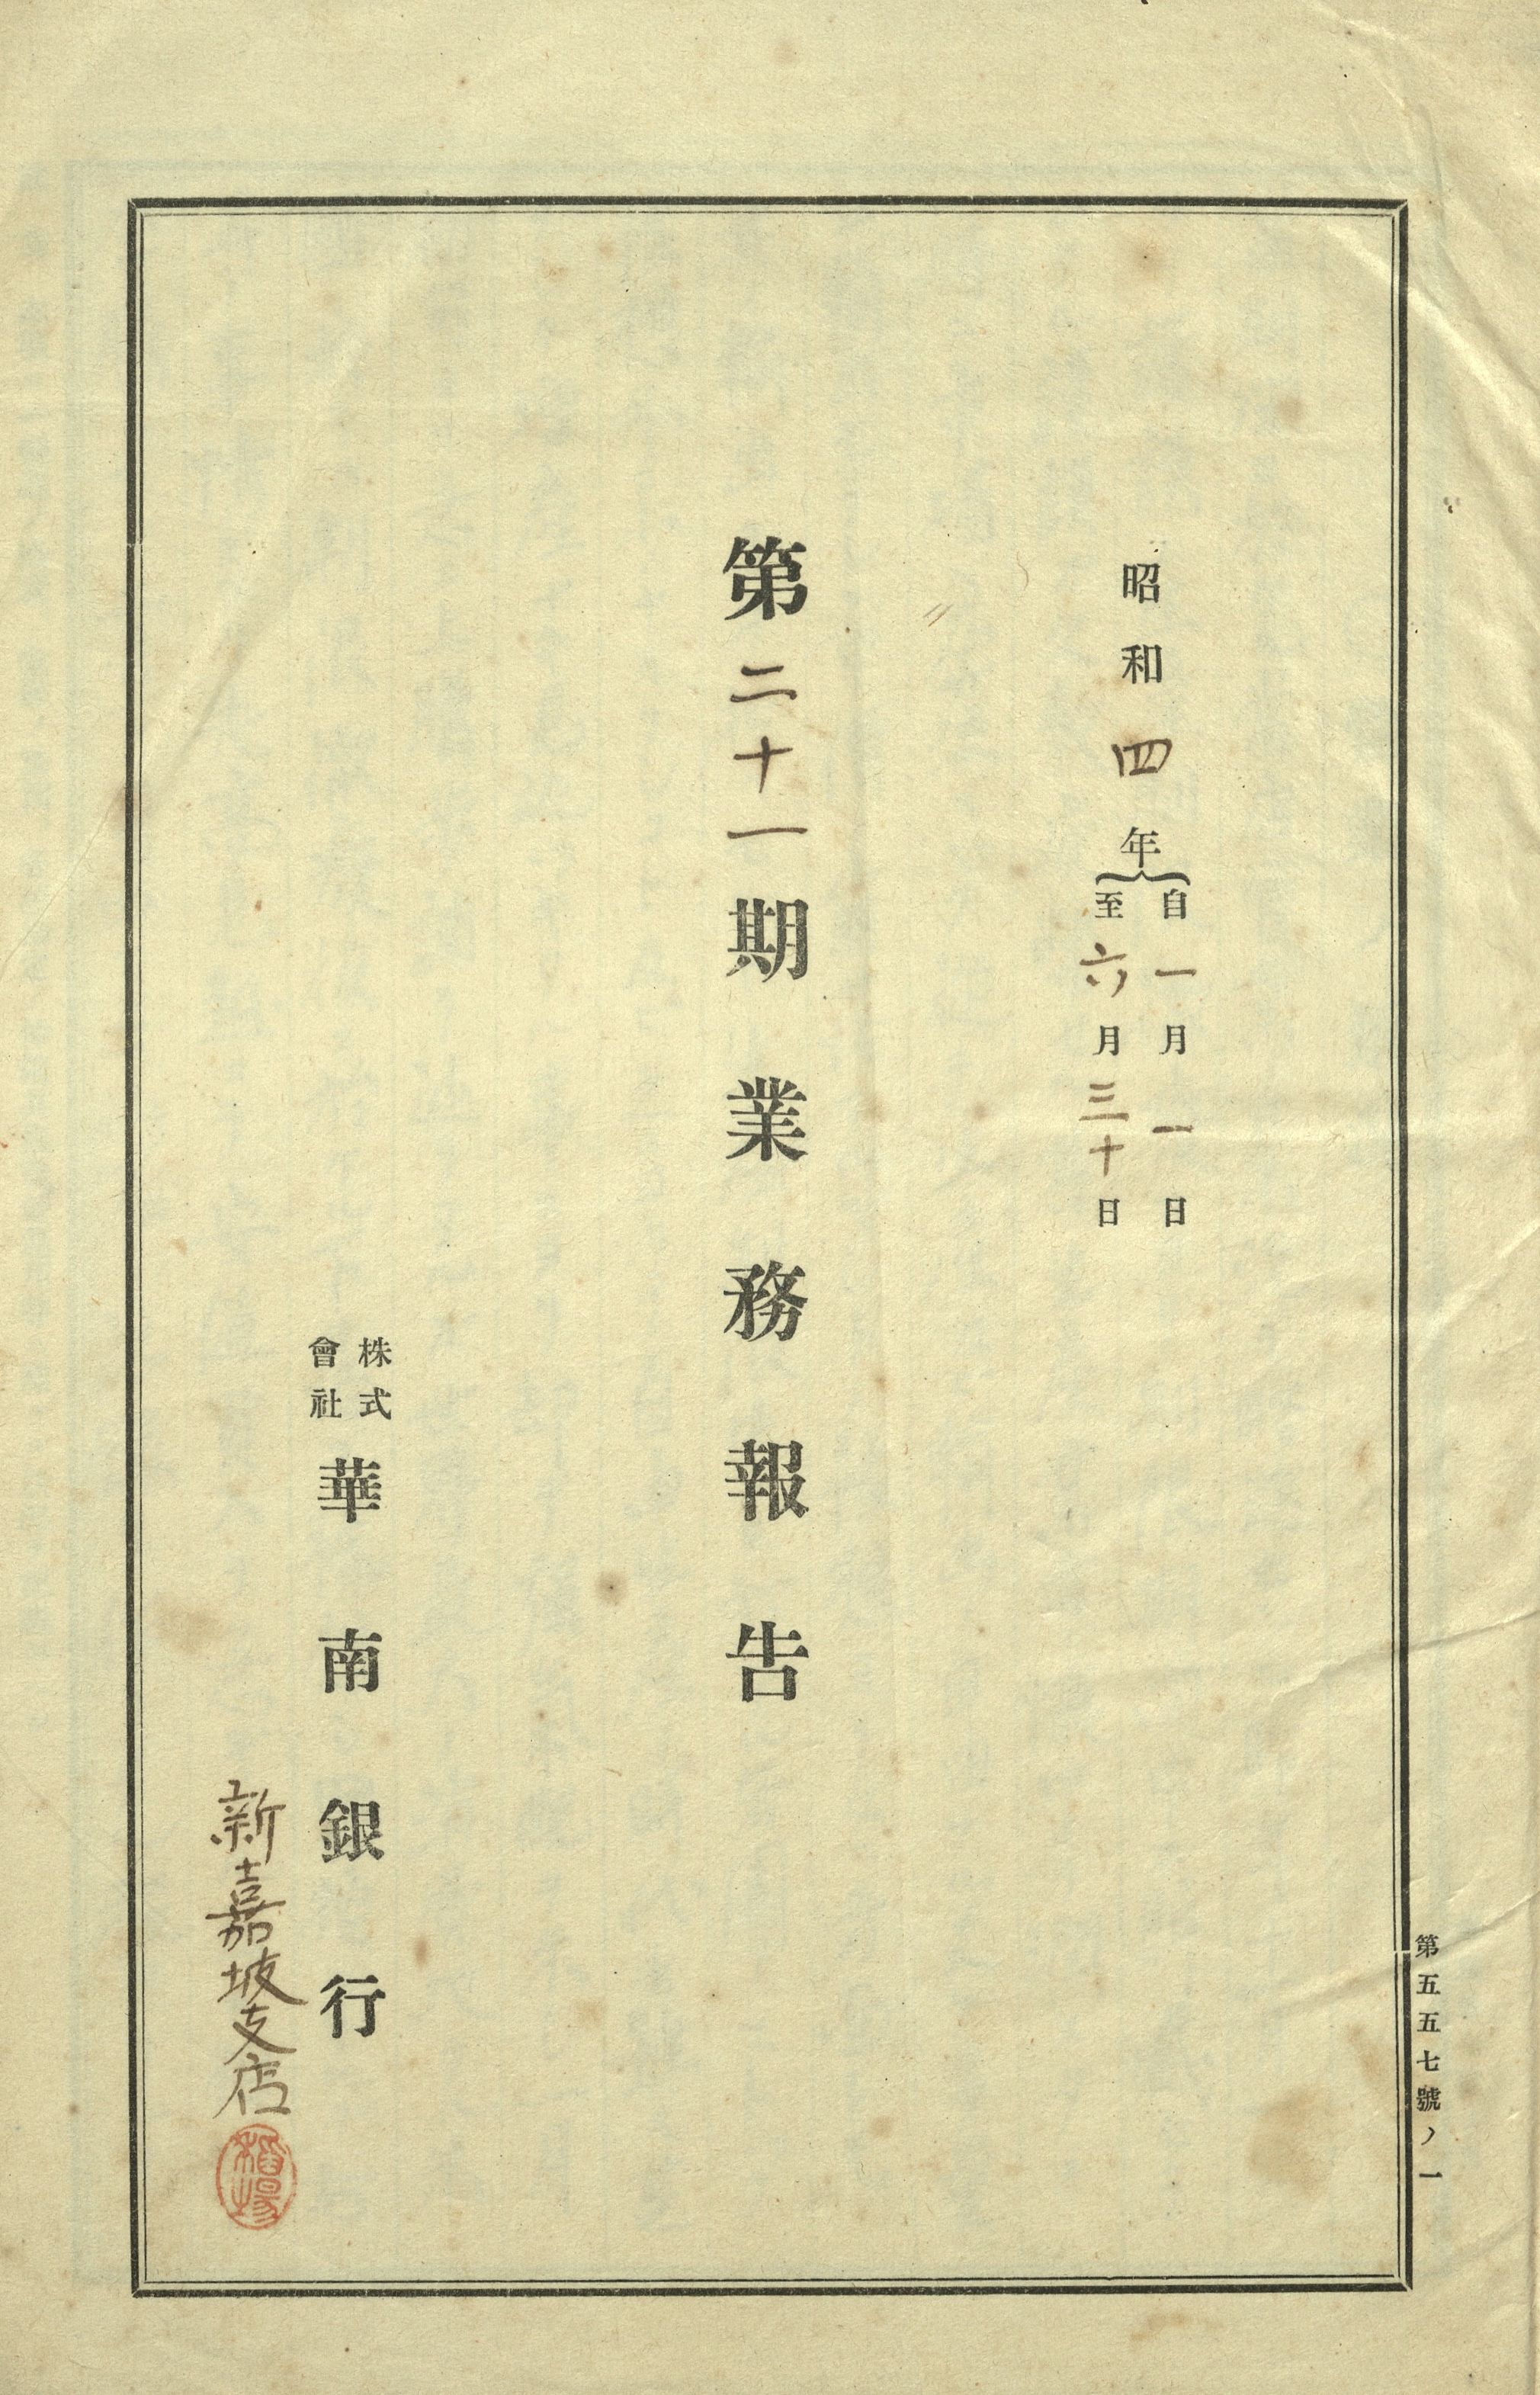 昭和四年
自一月一日
至六月三十日
第二十一期業務報告
株式
會社
華南銀行
新嘉坡支店
稻場
第五五七號ノ一